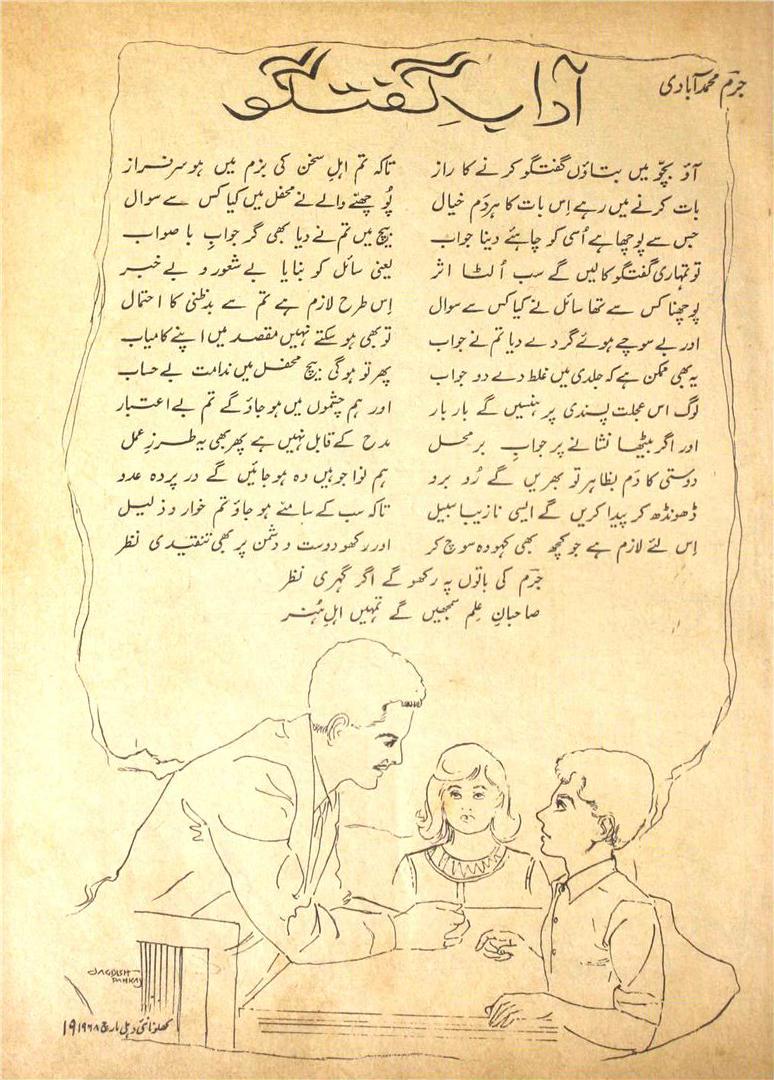 جرم محمدآبادی
آدابِ گفتگو
آؤ بچّو میں بتاؤں گفتگو کرنے کا راز
تاکہ تم اہلِ سخن کی بزم میں ہو سرفراز
بات کرنے میں رہے اِس بات کا ہردَم خیال
پُوچھنے والے نے محفل میں کیا کس سے سوال
جس سے پوچھا ہے اُسی کو چاہئے دینا جواب
بیچ میں تم نے دیا بھی گر جوابِ با صواب
تو تمہاری گفتگو کا لیں گے سب اُلٹا اثر
یعنی سائل کو بنایا بے شعور و بے خبر
پوچھنا کس سے تھا سائل نے کیا کس سے سوال
اِس طرح لازم ہے تم سے بدظنی کا احتمال
اور بے سوچے ہوئے گر دے دیا تم نے جواب
تو بھی ہو سکتے نہیں مقصد میں اپنے کامیاب
یہ بھی ممکن ہے کہ جلدی میں غلط دے دو جواب
پھر تو ہوگی بیچ محفل میں ندامت بے حساب
لوگ اس عجلت پسندی پر ہنسیں گے بار بار
اور ہم چشموں میں ہو جاؤ گے تم بے اعتبار
اور اگر بیٹھا نشانے پر جوابِ برمحل
مدح کے قابل نہیں ہے پھر بھی یہ طرزِ عمل
دوستی کا دَم بظاہر تو بھریں گے رُو برو
ہم نوا جو ہیں وہ ہو جائیں گے در پردہ عدو
ڈھونڈھ کر پیدا کریں گے ایسی نازیبا سبیل
تاکہ سب کے سامنے ہو جاؤ تم خوار و ذلیل
اِس لئے لازم ہے جو کچھ بھی کہو وہ سوچ کر
اور رکھو دوست و دشمن پر بھی تنقیدی نظر
جرم کی باتوں پہ رکھو گے اگر گہری نظر
صاحبانِ عِلم سمجھیں گے تمہیں اہلِ ہُنر
JAGDISH
PANKAJ
کھلونا نئی دہلی مارچ ۱۹۶۸ 19